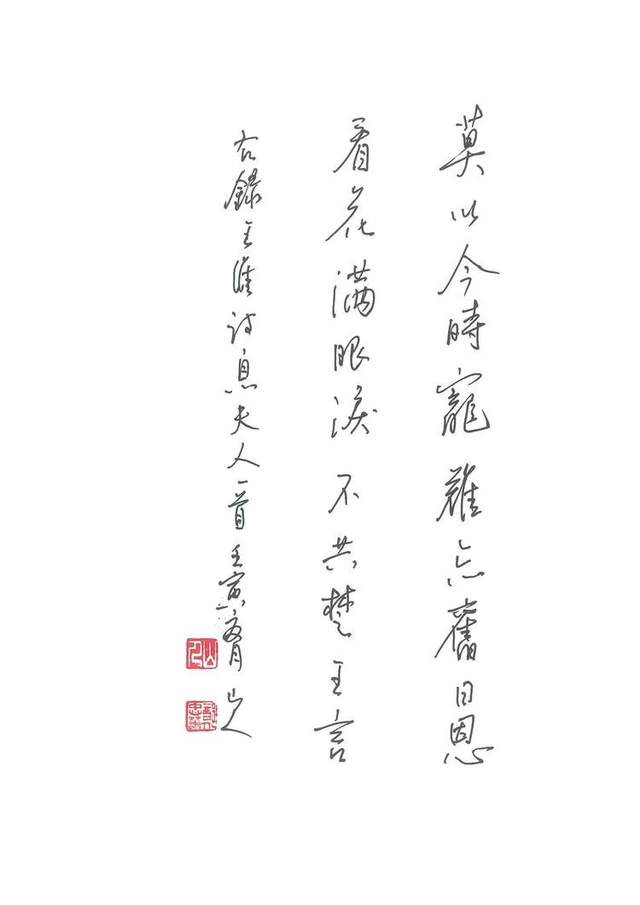 莫以今時寵難忘舊日恩
看花滿眼淚不共楚王言
右錄王維詩息夫人一首壬寅月山人
山人